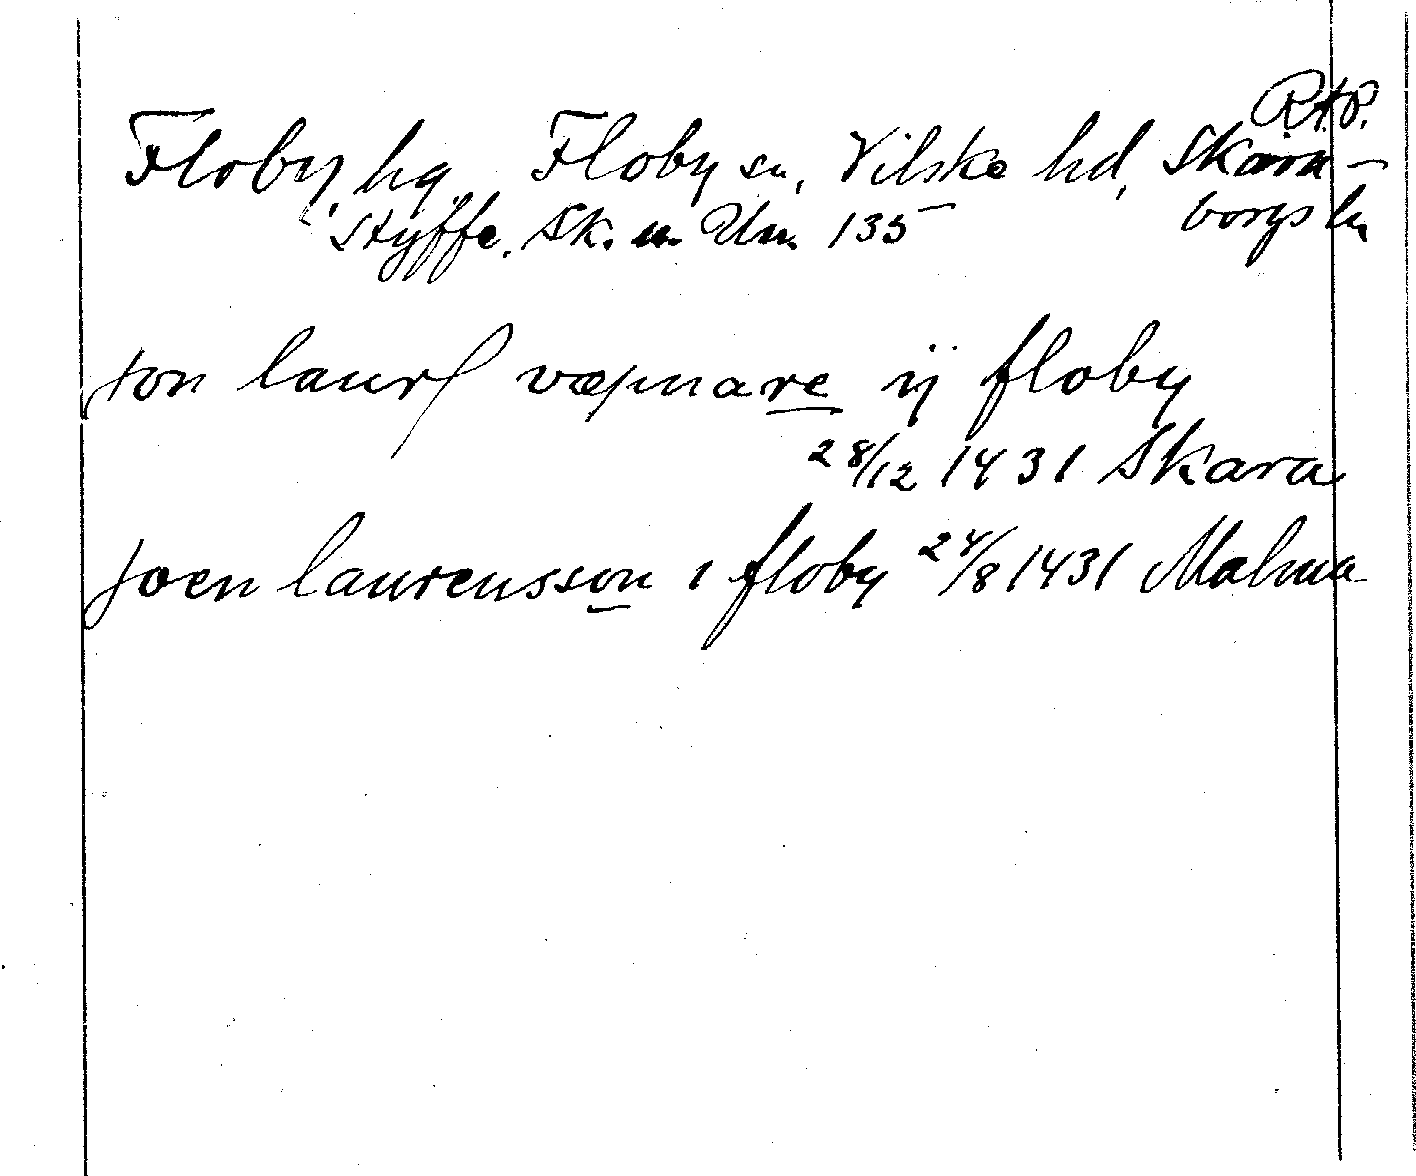 R.A.P.
Floby, hg, Floby sn, Vilske hd, Skara-
Styffe, Sk. u. Un. 135 borgs ln
Jon laurſ væpnare ij floby
28/12 1431 Skara
Joen laurensson i floby 24/8 1431 Malma